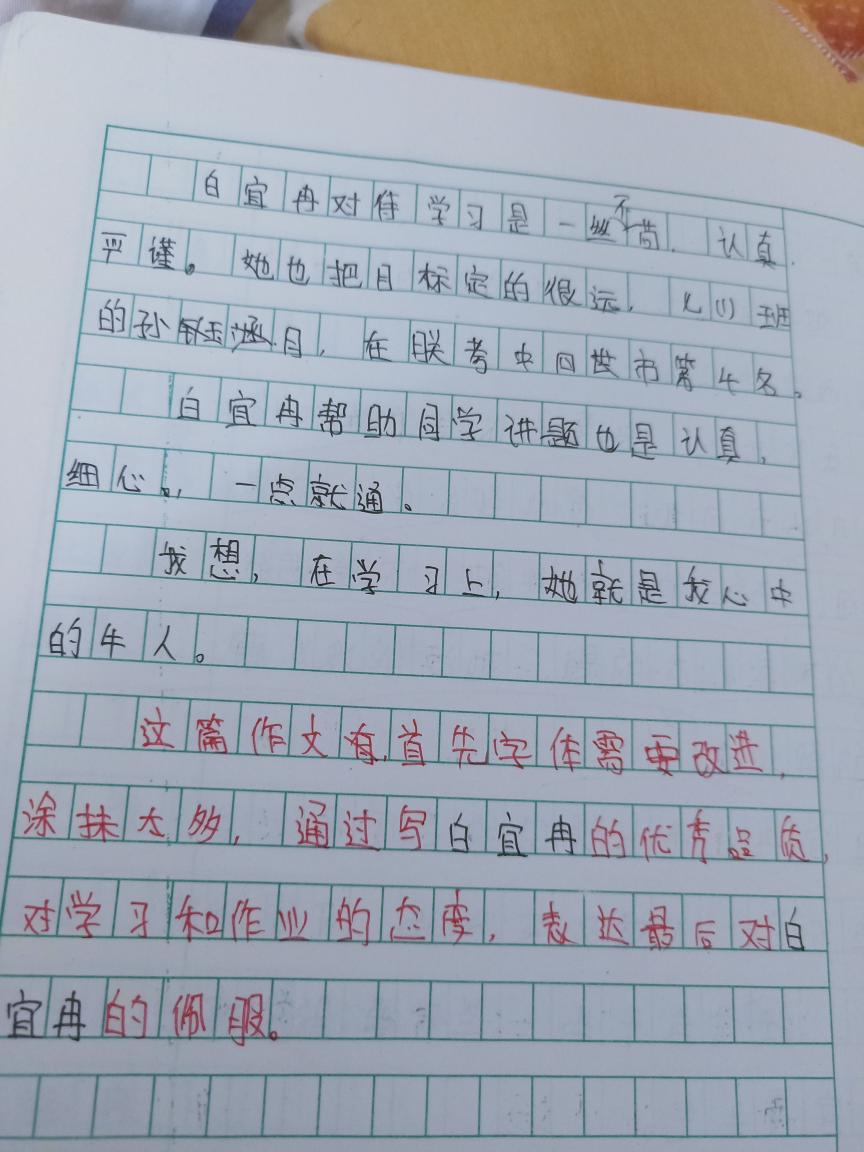 白宜冉对待学习是一丝不苟.认真.
平谨。她也把目标定的很远,七(1)班
的孙钰涵.目,在联考中四世市第4名。
白宜冉帮助同学讲题也是认真,
细心。,一点就通。
我想,在学习上,她就是我心中
的牛人。
这篇作文有,首先字体需要改进,
涂抹太多,通过写白宜冉的优秀品质,
对学习和作业的态度,表达最后对白
宜冉的佩服。